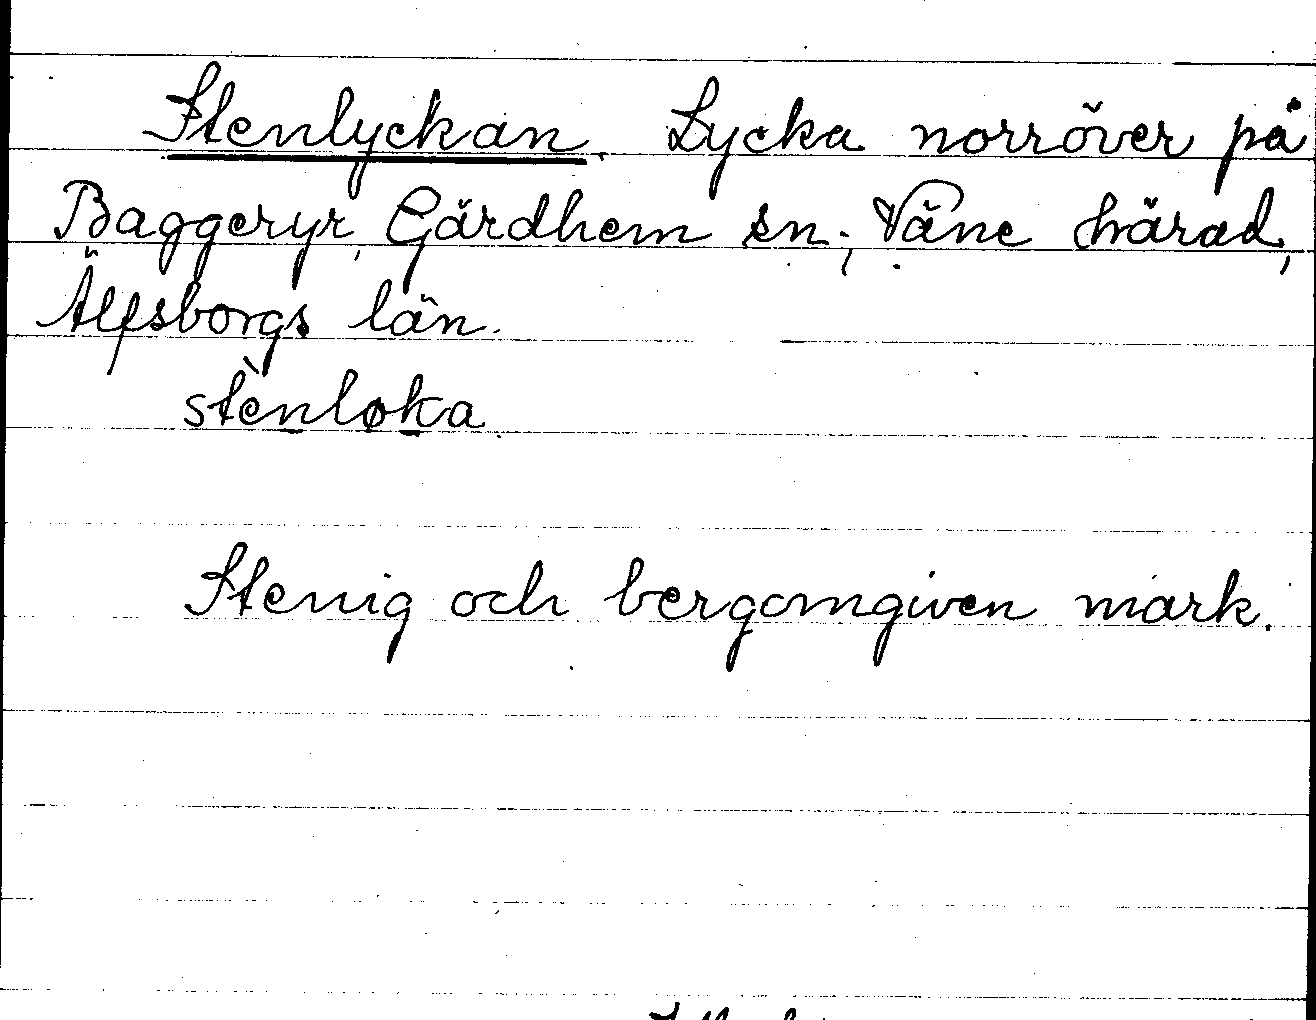 Stenlyckan. Lycka norröver på
Baggeryr, Gärdhem sn., Väne härad,
Älfsborgs län.
stènløka
Stenig och bergomgiven mark.